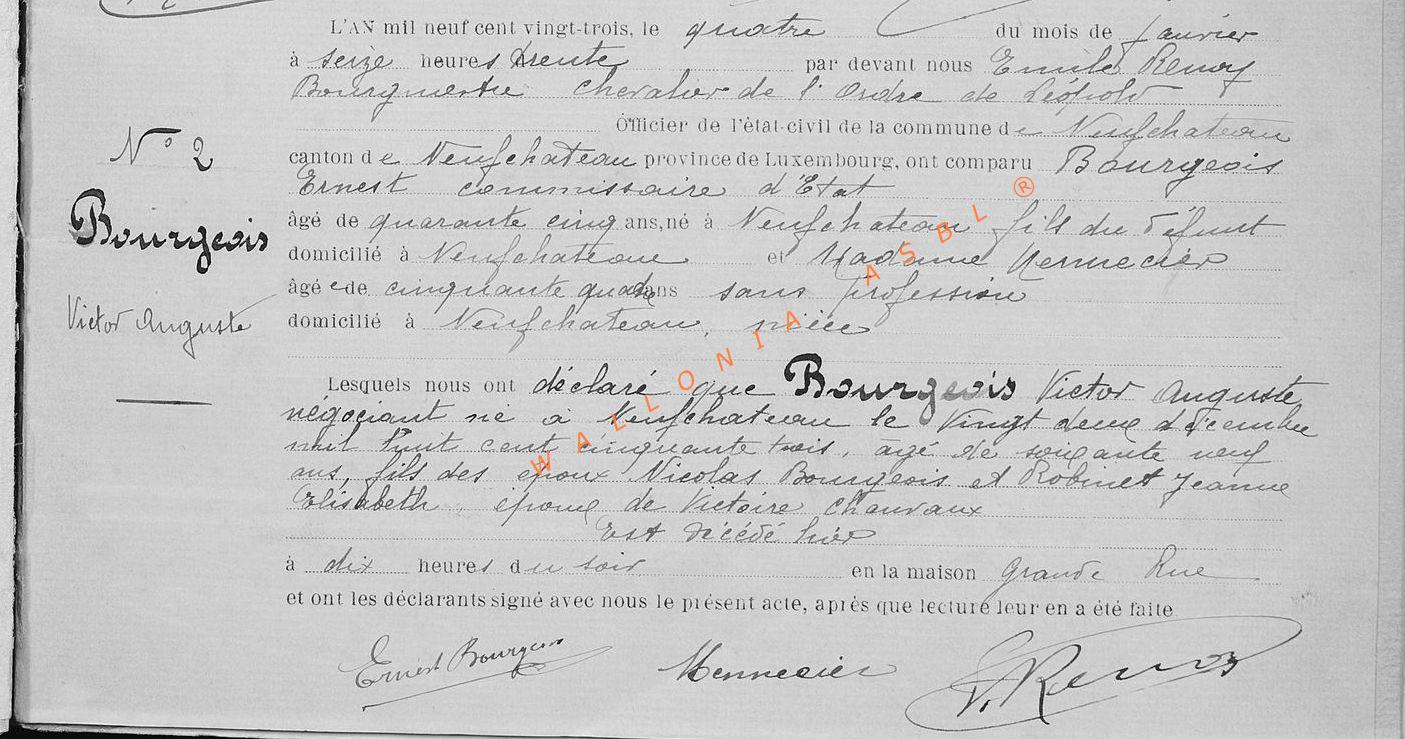 L'AN mil neuf cent vingt-trois, le quatre du mois de Janvier
à seize heures trente par devant nous Emile Renoy
Bourgmestre Chevalier de l'Ordre de Léopold
Officier de l'état-civil de la commune de Neufchateau
canton de Neufchateau province de Luxembourg, ont comparu Bourgeois
Ernest commissaire d'Etat
âgé de quarante cinq ans, né à Neufchateau fils du défunt
domicilié à Neufchateau et Madame Mennecier
âgée de cinquante quatre ans sans profession
domicilié à Neufchateau, nièce
N° 2
Bourgeois
Victor Auguste
Lesquels nous ont déclaré que Bourgeois Victor Auguste
négociant né à Neufchateau le Vingt deux décembre
mil huit cent cinquante trois, âgé de soixante neuf
ans, fils des époux Nicolas Bourgeois et Robinet Jeanne
Elisabeth, époux de Victoire Chauvaux
Est décédé hier
à dix heures du soir en la maison Grande Rue
et ont les déclarants signé avec nous le présent acte, après que lecture leur en a été faite
Ernest Bourgeois Mennecier Renoy
WALLONIA ASBL ®